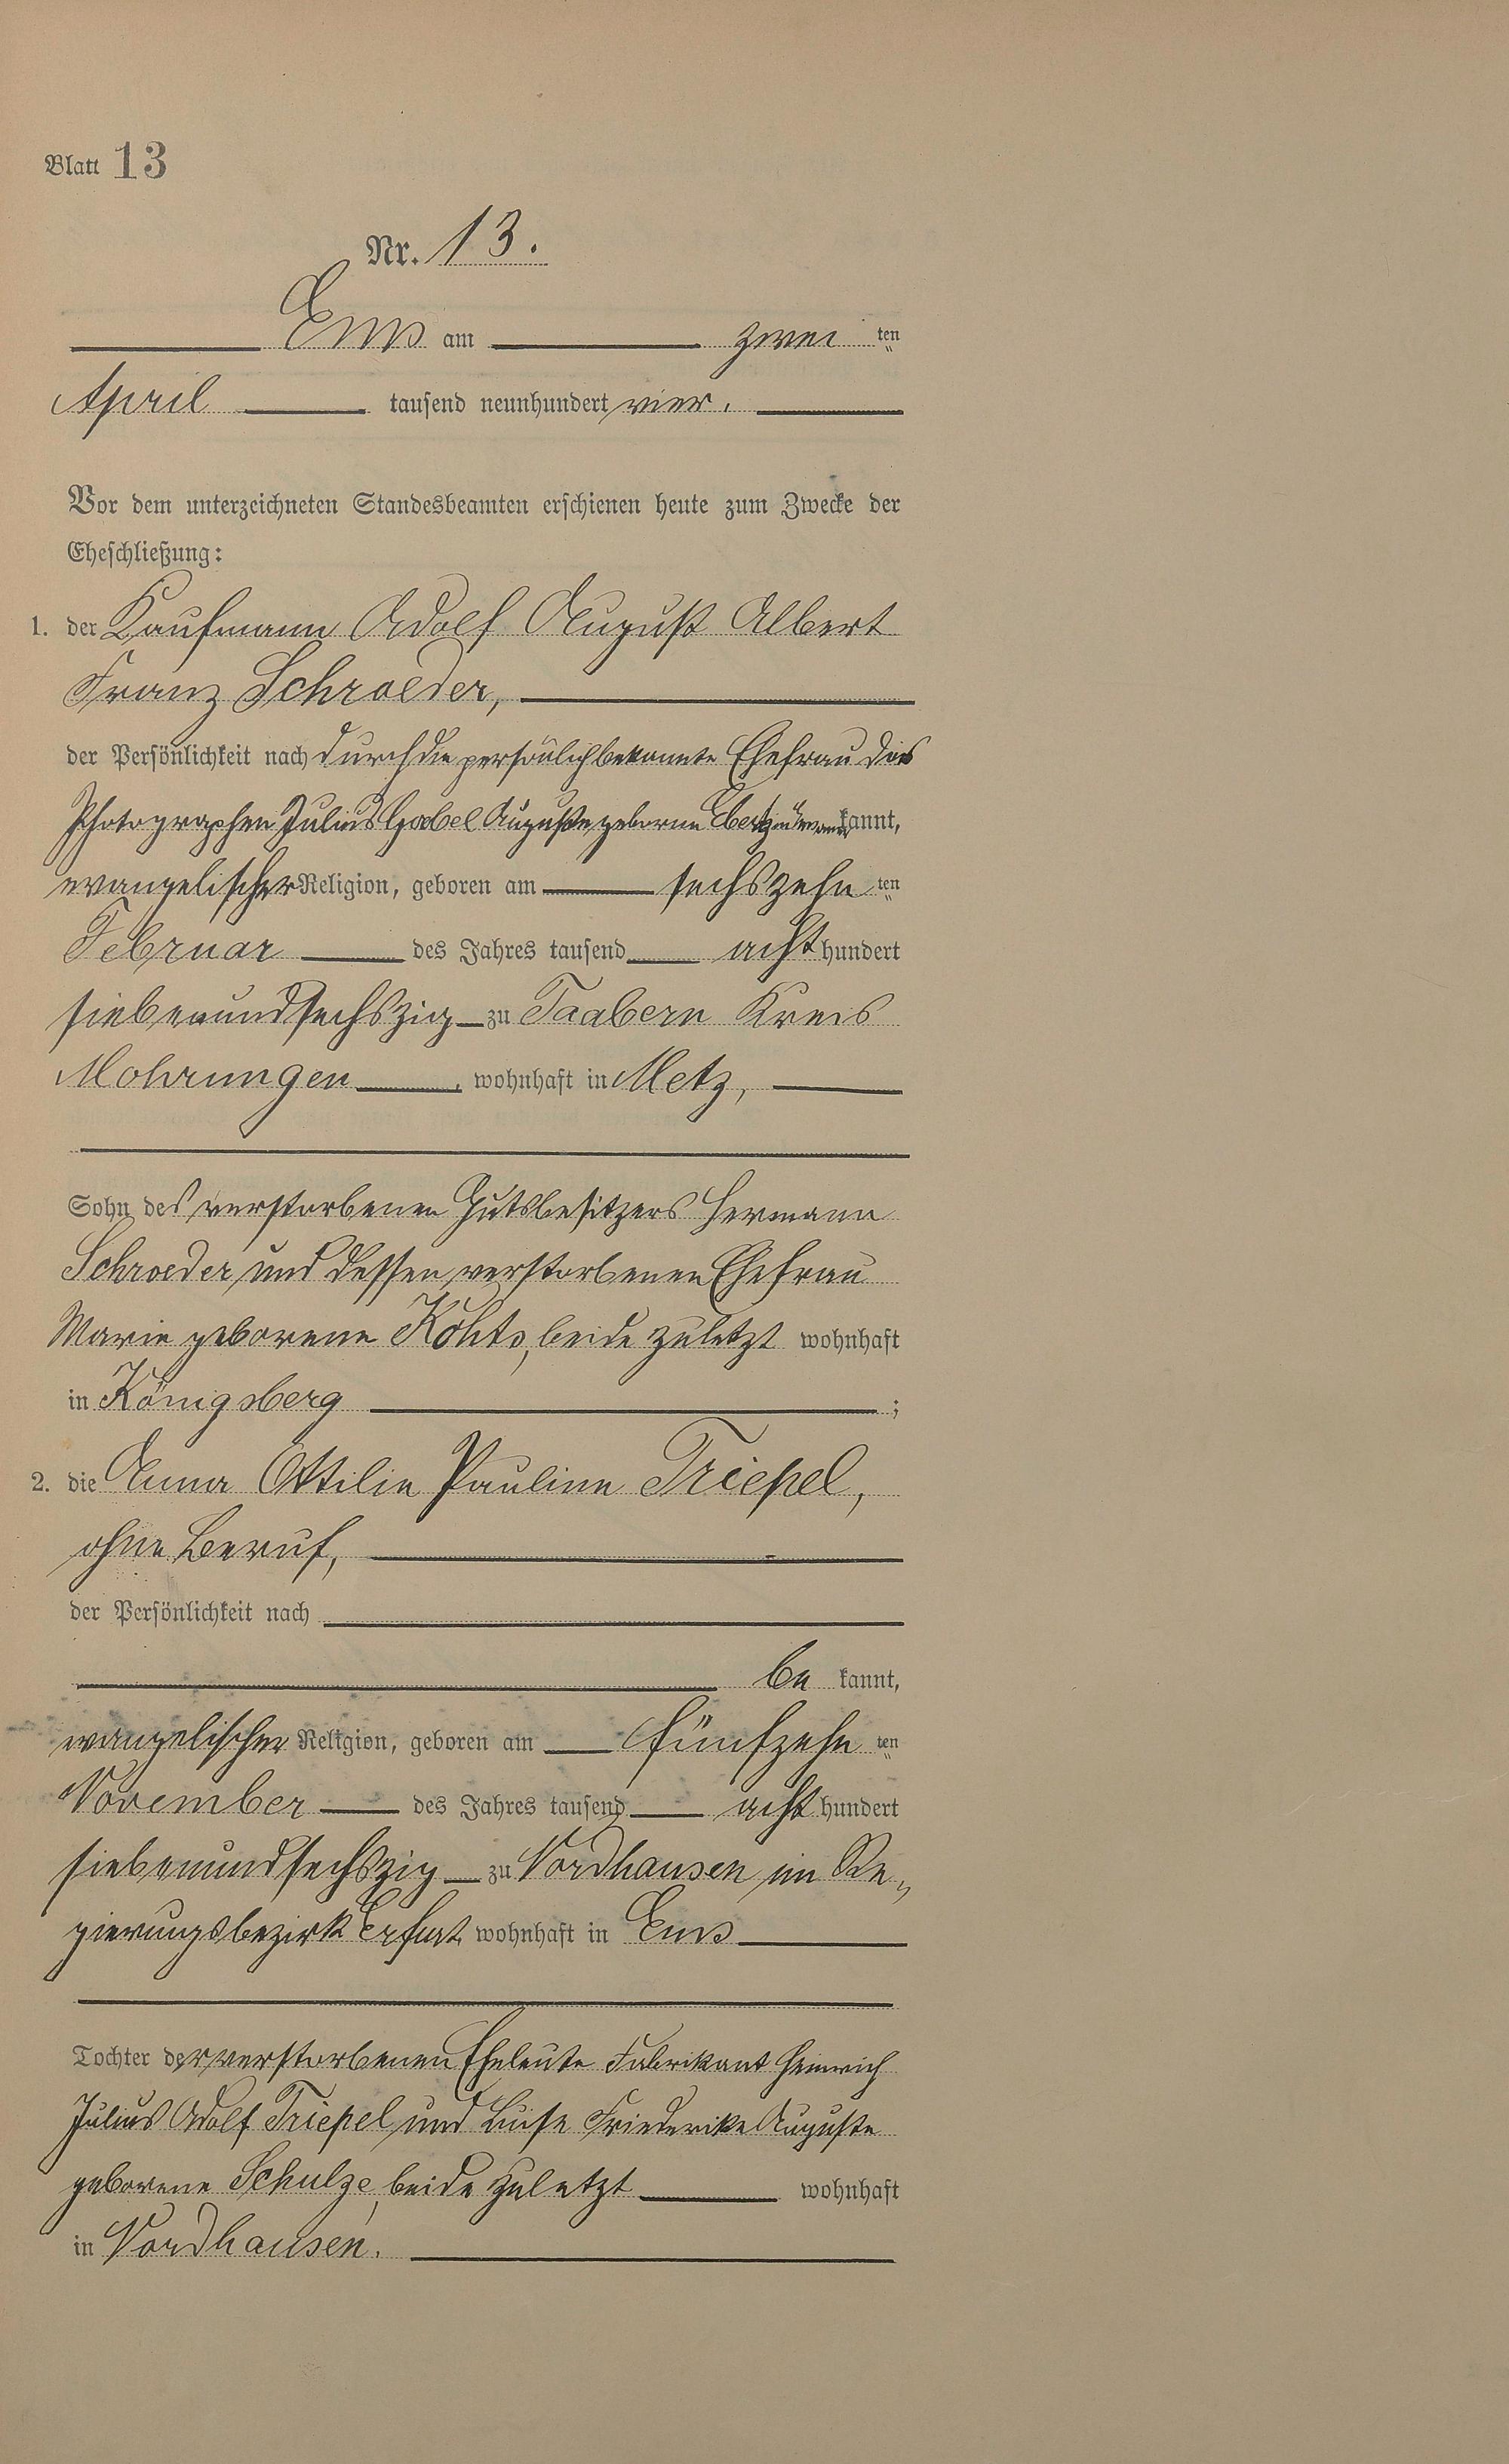 Blatt 13
Nr. 13.
Ems am zwei ten
April tausend neunhundert vier.
Vor dem unterzeichneten Standesbeamten erschienen heute zum Zwecke der
Eheschließung:
1. der Kaufmann Adolf August Albert
Franz Schroeder,
der Persönlichkeit nach durch die persönlich bekannte Ehefrau des
Photographen Julius Goebel Auguste geborene kannt,
evangelischer Religion, geboren am sechszehn ten
Februar des Jahres tausend acht hundert
siebenundsechszig zu Taabern Kreis
Mohrungen, wohnhaft in Metz,
Sohn des verstorbenen Gutsbesitzers Hermann
Schroeder und dessen verstorbenen Ehefrau
Marie geborene Kohts, beide zuletzt wohnhaft
in Königsberg ;
2. die Anna Ottilie Pauline Triepel,
ohne Beruf,
der Persönlichkeit nach
be kannt,
evangelischer Religion, geboren am fünfzehn ten
November des Jahres tausend acht hundert
siebenundsechszig zu Nordhausen im Re„
gierungsbezirk Erfurt, wohnhaft in Ems
Tochter der verstorbenen Eheleute Fabrikant Heinrich
Julius Adolf Triepel und Luise Friederike Auguste
geborene Schulze, beide zuletzt wohnhaft
in Nordhausen.